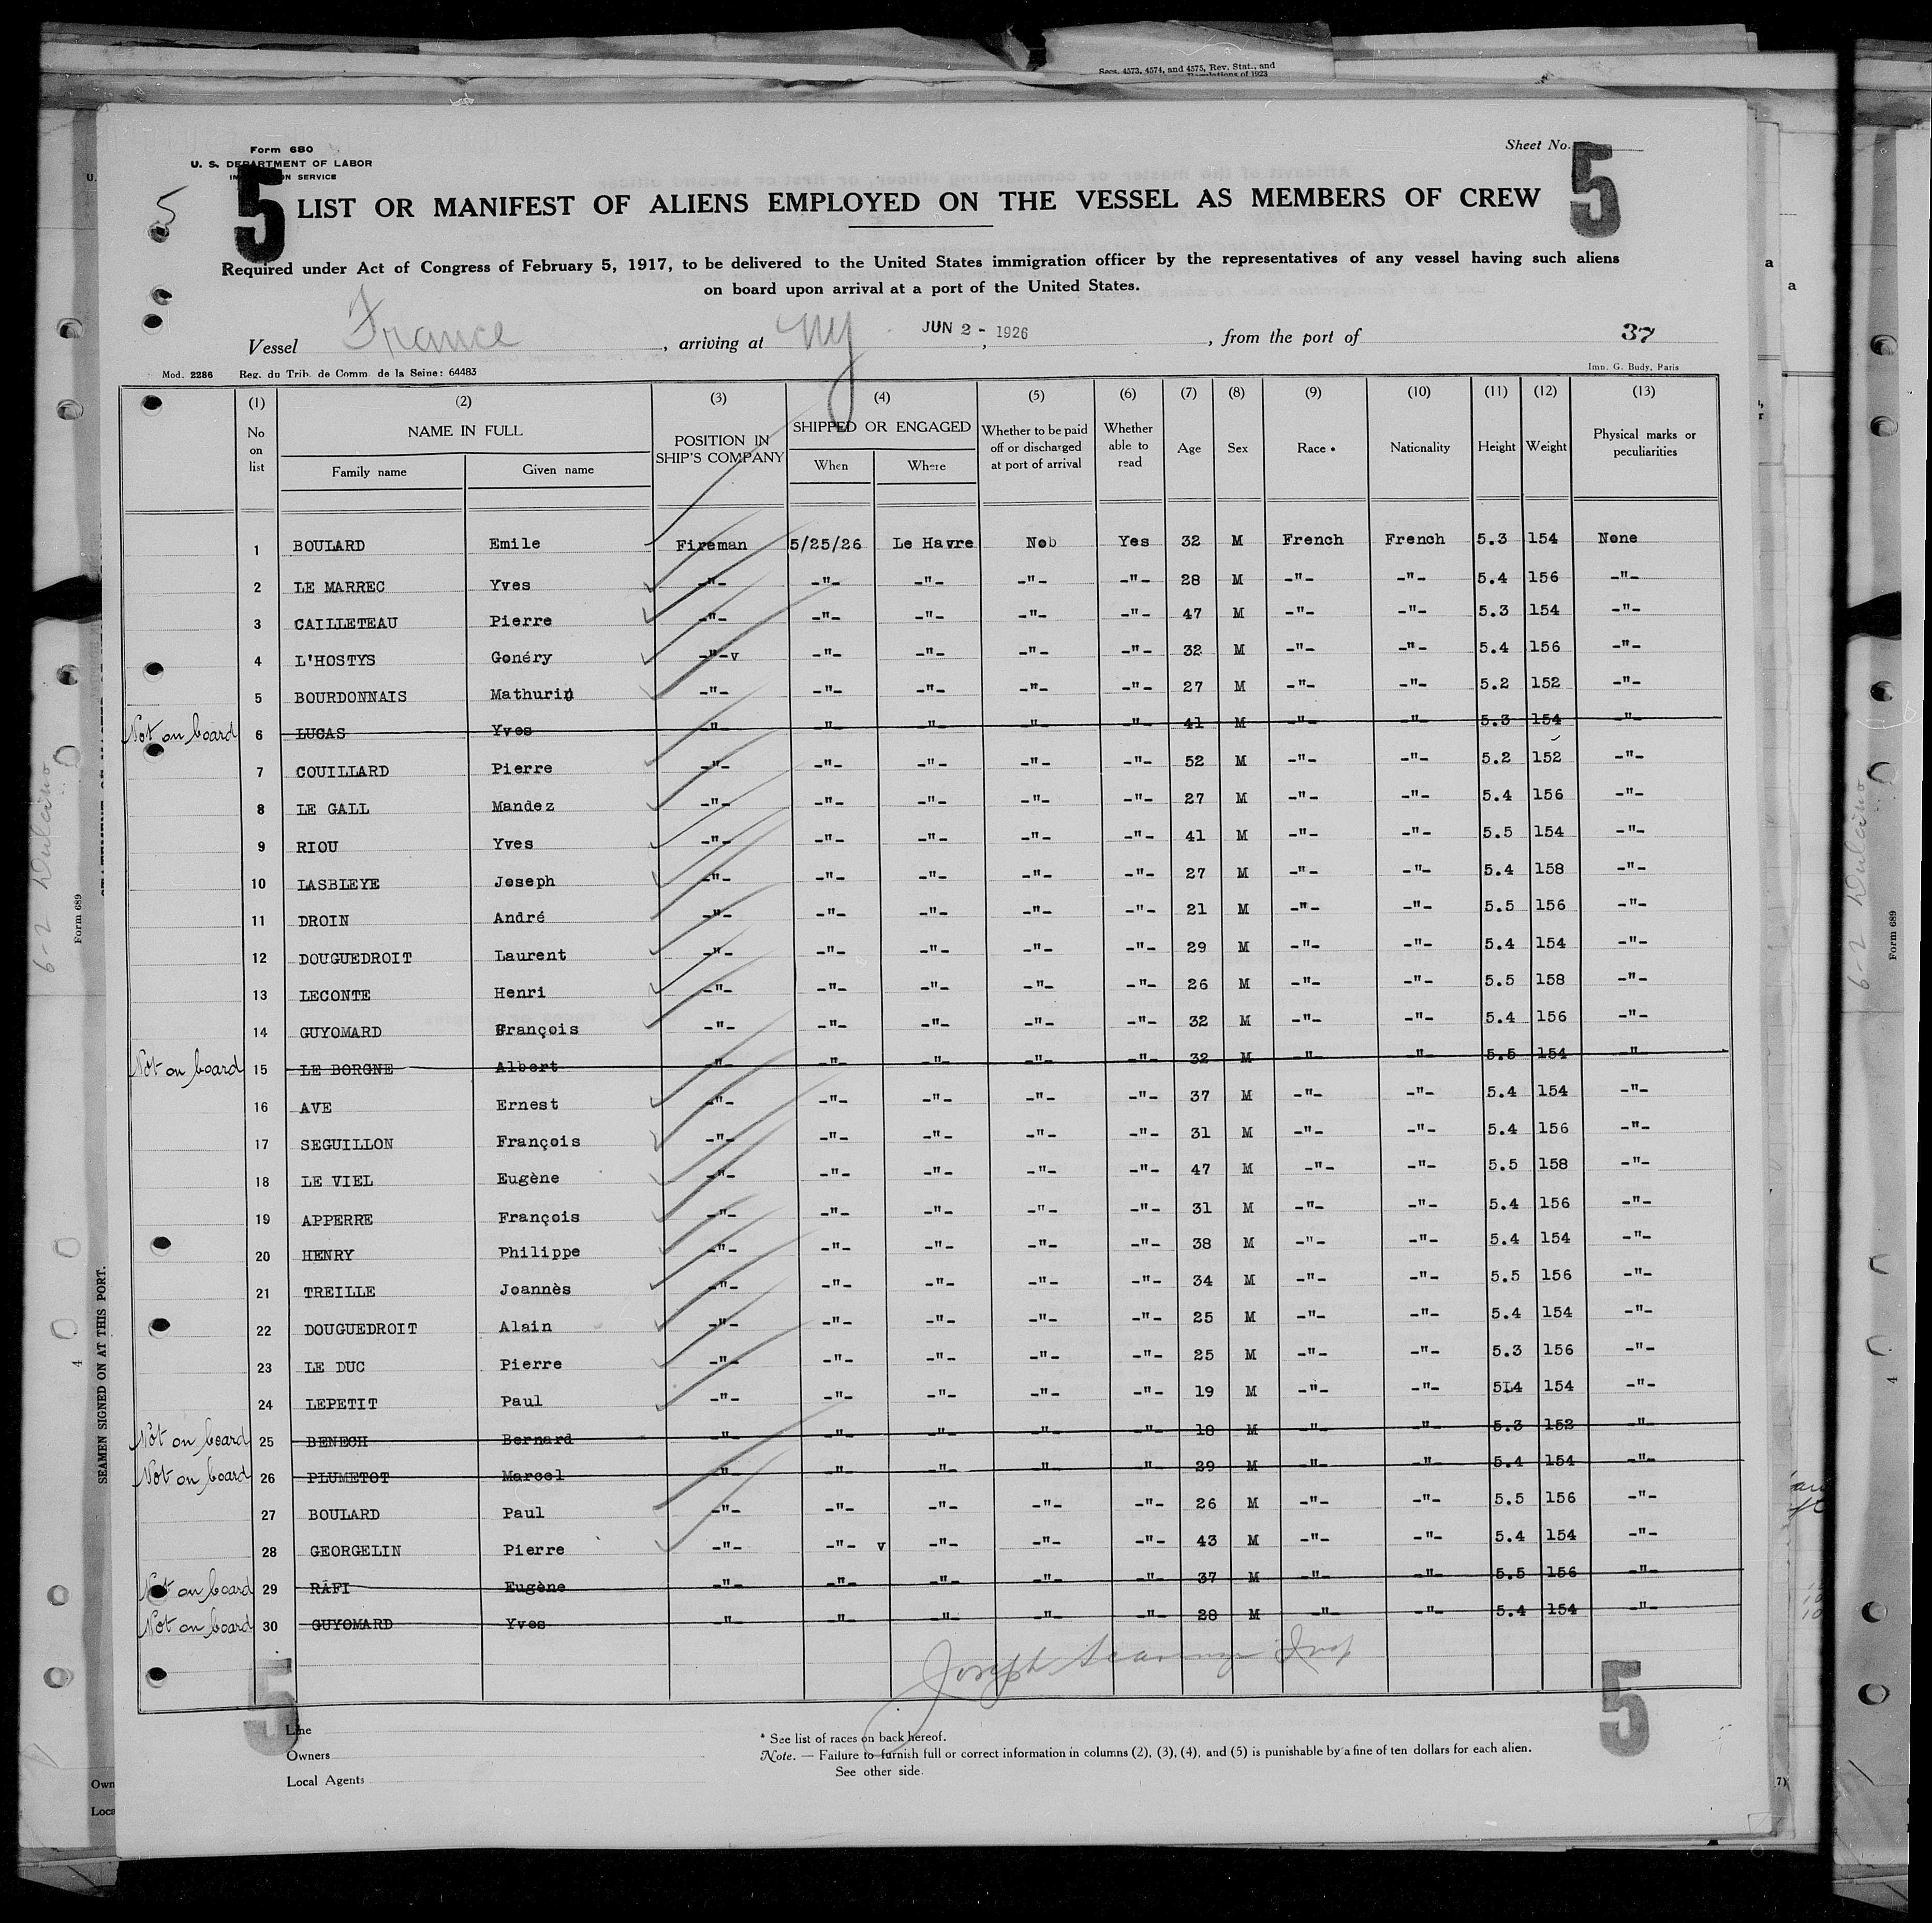 Secs. 4573, 4574, and 4575, Rev. Stat., and
Regulations of 1923
Form 680
U. S. DEPARTMENT OF LABOR
SERVICE
Sheet No.
5
5
5
LIST OR MANIFEST OF ALIENS EMPLOYED ON THE VESSEL AS MEMBERS OF CREW
Required under Act of Congress of February 5, 1917, to be delivered to the United States immigration officer by the representatives of any vessel having such aliens
on board upon arrival at a port of the United States.
Vessel France, arriving at NY, JUN 2 - 1926, from the port of 37
Mod. 2286 Reg. du Trib. de Comm. de la Seine: 64483
Imp. G. Budy, Paris
(1) (2) (3) (4) (5) (6) (7) (8) (9) (10) (11) (12) (13)
No on list NAME IN FULL Family name Given name POSITION IN SHIP'S COMPANY SHIPPED OR ENGAGED When Where Whether to be paid off or discharged at port of arrival Whether able to read Age Sex Race * Nationality Height Weight Physical marks or peculiarities
1 BOULARD Emile Fireman 5/25/26 Le Havre Nob Yes 32 M French French 5.3 154 None
2 LE MARREC Yves -"- -"- -"- -"- -"- 28 M -"- -"- 5.4 156 -"-
3 CAILLETEAU Pierre -"- -"- -"- -"- -"- 47 M -"- -"- 5.3 154 -"-
4 L'HOSTYS Gonéry -"-v -"- -"- -"- -"- 32 M -"- -"- 5.4 156 -"-
5 BOURDONNAIS Mathurin -"- -"- -"- -"- -"- 27 M -"- -"- 5.2 152 -"-
Not on board 6 LUCAS Yves -"- -"- -"- -"- -"- 41 M -"- -"- 5.3 154 -"-
7 COUILLARD Pierre -"- -"- -"- -"- -"- 52 M -"- -"- 5.2 152 -"-
8 LE GALL Mandez -"- -"- -"- -"- -"- 27 M -"- -"- 5.4 156 -"-
9 RIOU Yves -"- -"- -"- -"- -"- 41 M -"- -"- 5.5 154 -"-
10 LASBLEYE Joseph -"- -"- -"- -"- -"- 27 M -"- -"- 5.4 158 -"-
11 DROIN André -"- -"- -"- -"- -"- 21 M -"- -"- 5.5 156 -"-
12 DOUGUEDROIT Laurent -"- -"- -"- -"- -"- 29 M -"- -"- 5.4 154 -"-
13 LECONTE Henri -"- -"- -"- -"- -"- 26 M -"- -"- 5.5 158 -"-
14 GUYOMARD François -"- -"- -"- -"- -"- 32 M -"- -"- 5.4 156 -"-
Not on board 15 LE BORGNE Albert -"- -"- -"- -"- -"- 32 M -"- -"- 5.5 154 -"-
16 AVE Ernest -"- -"- -"- -"- -"- 37 M -"- -"- 5.4 154 -"-
17 SEGUILLON François -"- -"- -"- -"- -"- 31 M -"- -"- 5.4 156 -"-
18 LE VIEL Eugène -"- -"- -"- -"- -"- 47 M -"- -"- 5.5 158 -"-
19 APPERRE François -"- -"- -"- -"- -"- 31 M -"- -"- 5.4 156 -"-
20 HENRY Philippe -"- -"- -"- -"- -"- 38 M -"- -"- 5.4 154 -"-
21 TREILLE Joannès -"- -"- -"- -"- -"- 34 M -"- -"- 5.5 156 -"-
22 DOUGUEDROIT Alain -"- -"- -"- -"- -"- 25 M -"- -"- 5.4 154 -"-
23 LE DUC Pierre -"- -"- -"- -"- -"- 25 M -"- -"- 5.3 156 -"-
24 LEPETIT Paul -"- -"- -"- -"- -"- 19 M -"- -"- 5L4 154 -"-
Not on board 25 BENECH Bernard -"- -"- -"- -"- -"- 18 M -"- -"- 5.3 152 -"-
Not on board 26 PLUMETOT Marcel -"- -"- -"- -"- -"- 29 M -"- -"- 5.4 154 -"-
27 BOULARD Paul -"- -"- -"- -"- -"- 26 M -"- -"- 5.5 156 -"-
28 GEORGELIN Pierre -"- -"- v -"- -"- -"- 43 M -"- -"- 5.4 154 -"-
Not on board 29 RAFI Eugène -"- -"- -"- -"- -"- 37 M -"- -"- 5.5 156 -"-
Not on board 30 GUYOMARD Yves -"- -"- -"- -"- -"- 28 M -"- -"- 5.4 154 -"-
Joseph
5
5
Line
Owners
Local Agents
* See list of races on back hereof.
Note. — Failure to furnish full or correct information in columns (2), (3), (4), and (5) is punishable by a fine of ten dollars for each alien.
See other side.
Form 689
SEAMEN SIGNED ON AT THIS PORT.
Form 689